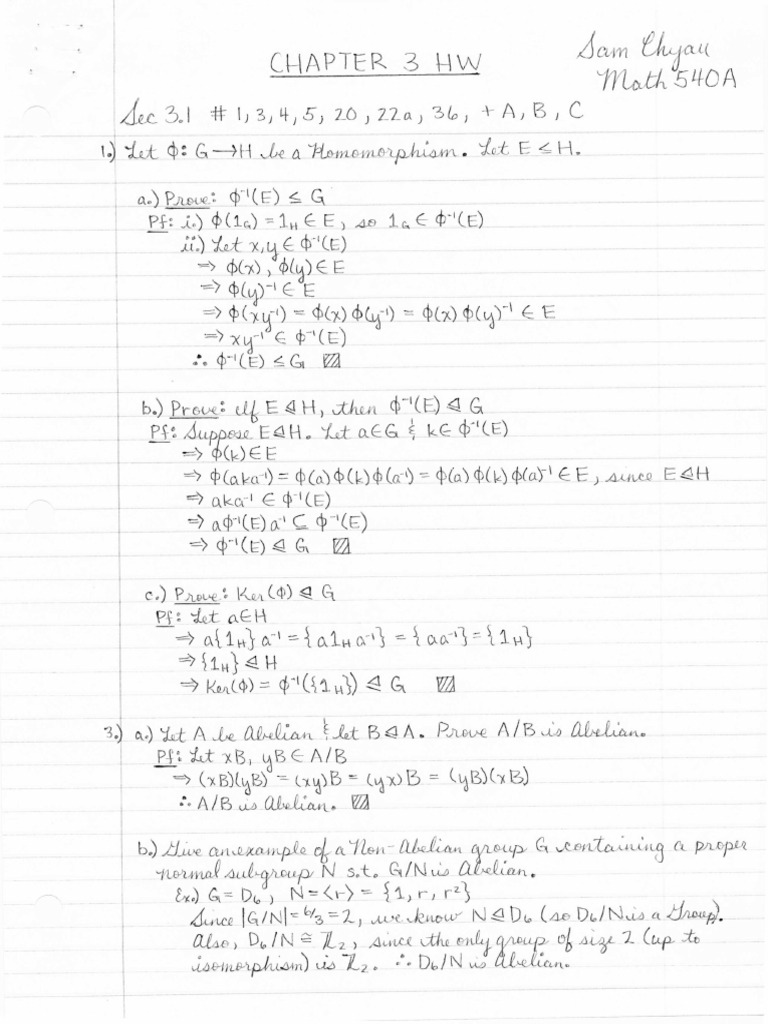 CHAPTER 3 HW
Sam Chyau
Math 540A
Sec 3.1 # 1, 3, 4, 5, 20, 22a, 36, + A, B, C
1.) Let Φ: G→H be a Homomorphism. Let E ≤ H.
a.) Prove: Φ⁻¹(E) ≤ G
Pf: i.) Φ(1_G) = 1_H ∈ E, so 1_G ∈ Φ⁻¹(E)
ii.) Let x, y ∈ Φ⁻¹(E)
⇒ Φ(x), Φ(y) ∈ E
⇒ Φ(y)⁻¹ ∈ E
⇒ Φ(xy⁻¹) = Φ(x) Φ(y⁻¹) = Φ(x) Φ(y)⁻¹ ∈ E
⇒ xy⁻¹ ∈ Φ⁻¹(E)
∴ Φ⁻¹(E) ≤ G ▨
b.) Prove: If E ⊴ H, then Φ⁻¹(E) ⊴ G
Pf: Suppose E ⊴ H. Let a ∈ G & k ∈ Φ⁻¹(E)
⇒ Φ(k) ∈ E
⇒ Φ(aka⁻¹) = Φ(a) Φ(k) Φ(a⁻¹) = Φ(a) Φ(k) Φ(a)⁻¹ ∈ E, since E ⊴ H
⇒ aka⁻¹ ∈ Φ⁻¹(E)
⇒ aΦ⁻¹(E)a⁻¹ ⊆ Φ⁻¹(E)
⇒ Φ⁻¹(E) ⊴ G ▨
c.) Prove: Ker(Φ) ⊴ G
Pf: Let a ∈ H
⇒ a{1_H}a⁻¹ = {a1_Ha⁻¹} = {aa⁻¹} = {1_H}
⇒ {1_H} ⊴ H
⇒ Ker(Φ) = Φ⁻¹({1_H}) ⊴ G ▨
3.) a.) Let A be Abelian & let B ⊴ A. Prove A/B is Abelian.
Pf: Let xB, yB ∈ A/B
⇒ (xB)(yB) = (xy)B = (yx)B = (yB)(xB)
∴ A/B is Abelian. ▨
b.) Give an example of a Non-Abelian group G containing a proper
normal subgroup N s.t. G/N is Abelian.
Ex.) G = D₆, N = <r> = {1, r, r²}
Since |G/N| = 6/3 = 2, we know N ⊴ D₆ (so D₆/N is a Group).
Also, D₆/N ≅ ℤ₂, since the only group of size 2 (up to
isomorphism) is ℤ₂. ∴ D₆/N is Abelian.